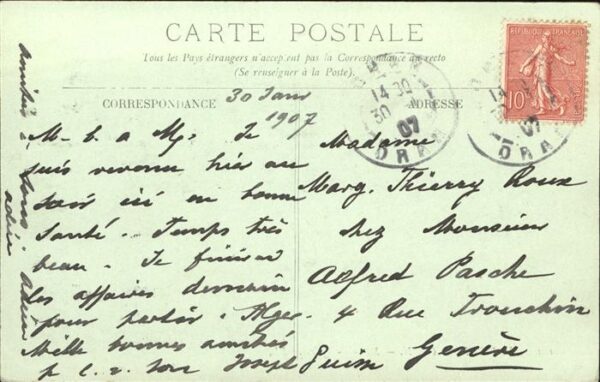 CARTE POSTALE
Tous les Pays étrangers n'acceptent pas la Correspondance au recto
(Se renseigner à la Poste).
CORRESPONDANCE
ADRESSE
30 Janv
1907
M. b. a Mg. Je
suis revenu hier au
soir ici en bonne
santé. Temps très
beau. Je finirai
les affaires demain
pour partir. Alger.
Mille bonnes amitiés
Joseph
Madame
Marg. Thierry Roux
chez Monsieur
Alfred Pasche
4 Rue Tronchin
Genève
Suisse
amitiés à tous
REPUBLIQUE FRANÇAISE
10
14
30
07
ORAN
07
ORAN